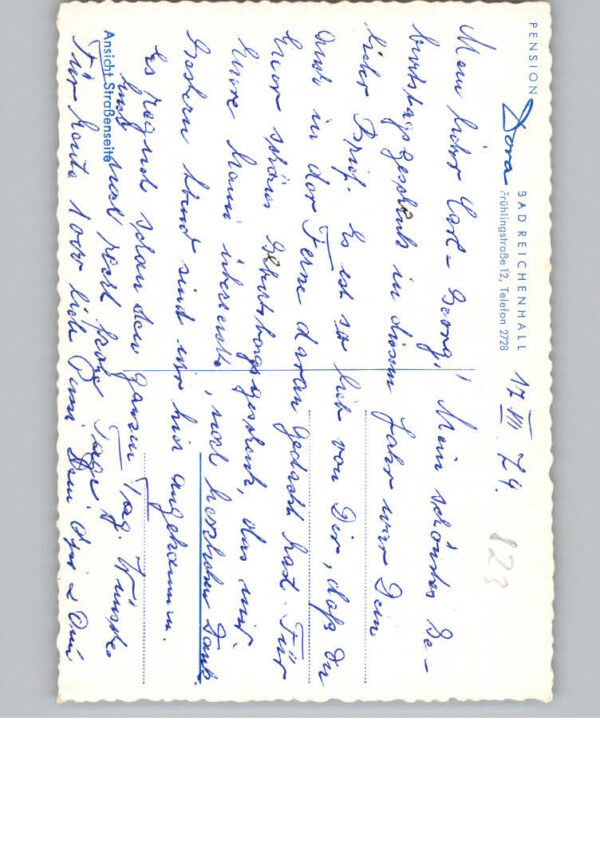 PENSION
Dora
BAD REICHENHALL
Frühlingstraße 12, Telefon 2728
17. VII. 74.
823
Mein lieber Carl-Georg, Mein schönstes Ge-
burtstagsgeschenk in diesem Jahr war Dein
lieber Brief. Es ist so lieb von Dir, daß Du
auch in der Ferne daran gedacht hast. Für
Euer schönes Geburtstagsgeschenk, das mir
Eure Mami überreichte, noch herzlichen Dank.
Gestern Abend sind wir hier angekommen.
Es regnet schon den ganzen Tag. Wünsche
Euch noch recht frohe Tage
Ansicht Straßenseite
Für heute 1000 liebe Dein Opi & Omi